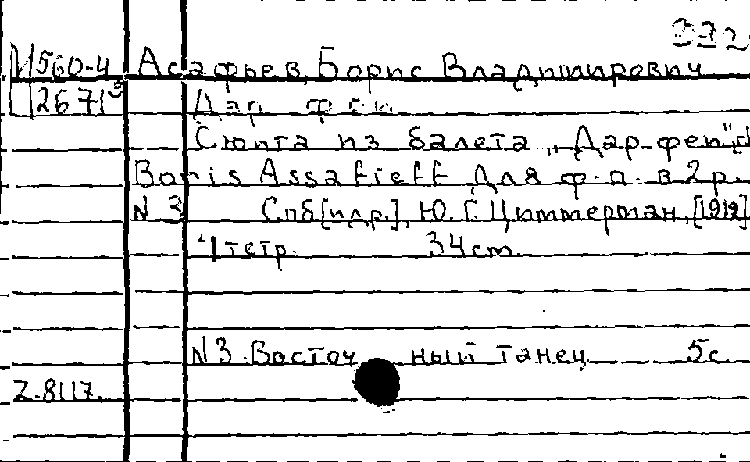 272
М 560-4 Асафьев, Борис Владимирович
2671³ Дар феи
Сюита из балета „Дар феи"
Boris Assafieff для ф.п. в 2 р.
N 3 Спб [и др.], Ю. Г. Циммерман, [1912]
1 тетр. 34 cm.
N 3. Восточный танец 5 с.
Z. 8117.